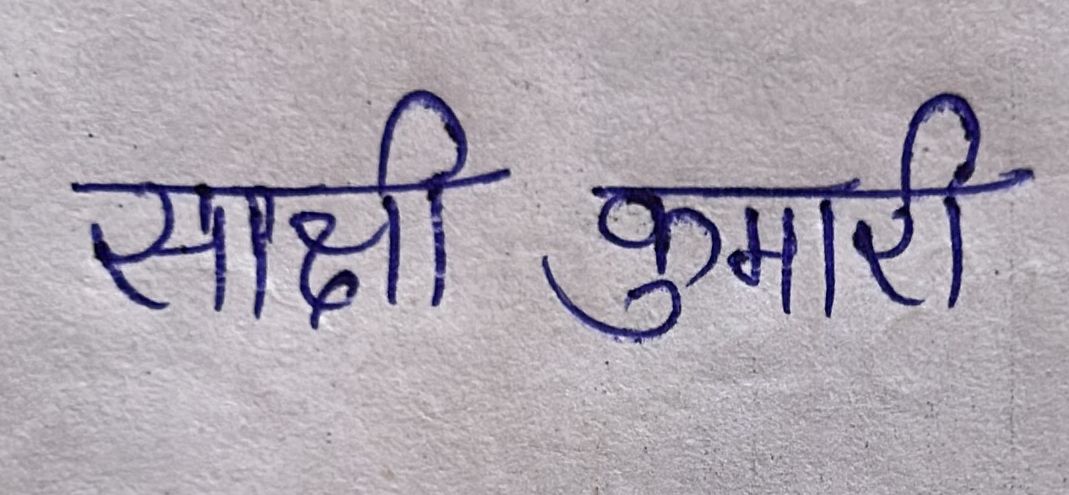 साक्षी कुमारी